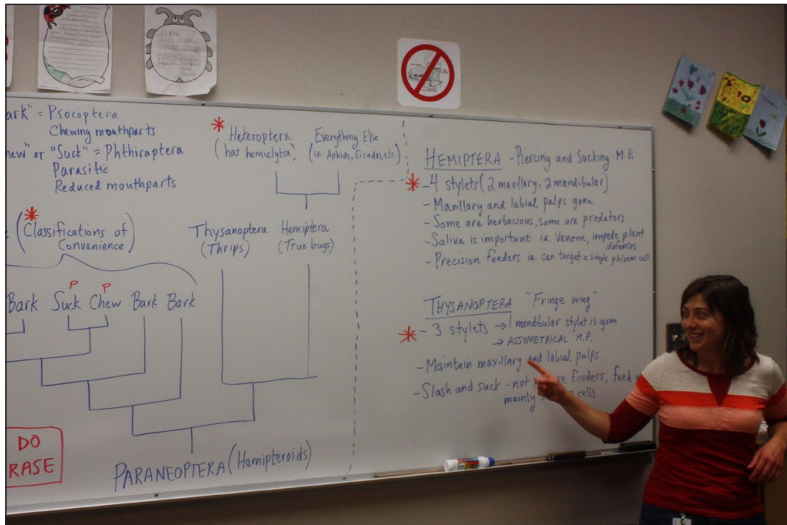 ark" = Psocoptera
Chewing mouthparts
hew" or "Suck" = Phthiraptera
Parasitic
Reduced mouthparts
(Classifications of
Convenience)
Bark Suck Chew Bark Bark
P P
DO
RASE
* Heteroptera
(has hemielytra)
Everything Else
(i.e. Aphids, Cicadas, etc)
Thysanoptera
(Thrips)
Hemiptera
(True bugs)
PARANEOPTERA (Hemipteroids)
HEMIPTERA - Piercing and Sucking M.P.
* - 4 stylets (2 maxillary, 2 mandibular)
- Maxillary and labial palps gone
- Some are herbacious, some are predators
- Saliva is important i.e. Venom, impede plant
defenses
- Precision feeders i.e. can target a single phloem cell.
THYSANOPTERA "Fringe wing"
* - 3 stylets → 1 mandibular stylet is gone
→ ASSYMETRICAL M.P.
- Maintain maxillary and labial palps
- Slash and suck - not feeders, feed
mainly cells.